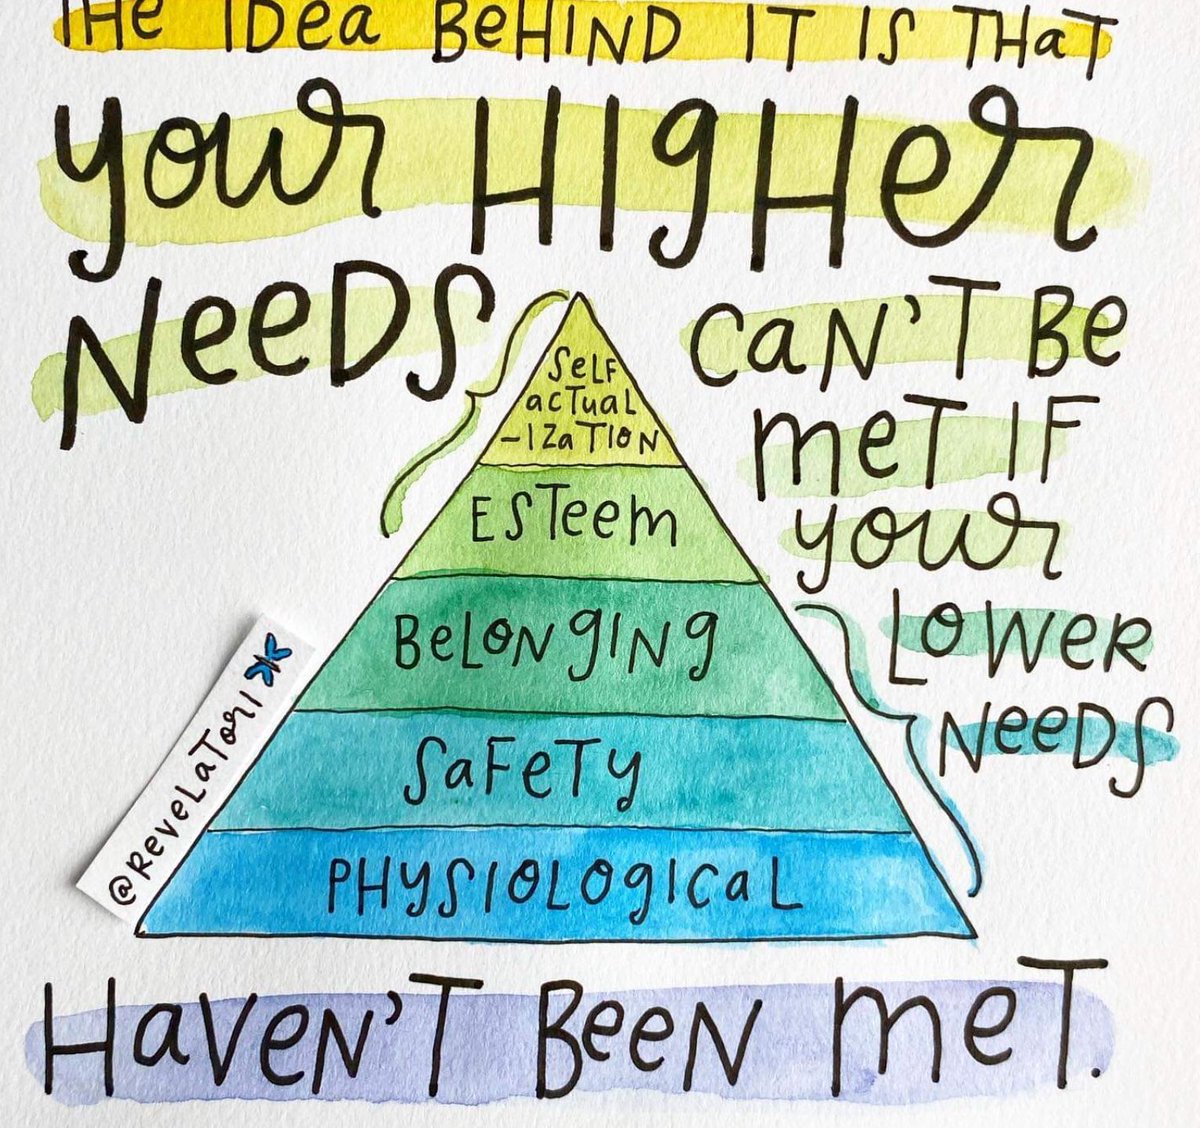 THE IDea BeHIND IT IS THaT
your HIgHer
NeeDS
CaN'T Be
meT IF
your
LOWeR
NeeDS
SeLF
acTuaL
-IZaTION
ESTeem
BeLONgINg
SaFeTy
PHySIOLOgICaL
@ReveLaTorI
HaveN'T BeeN meT.